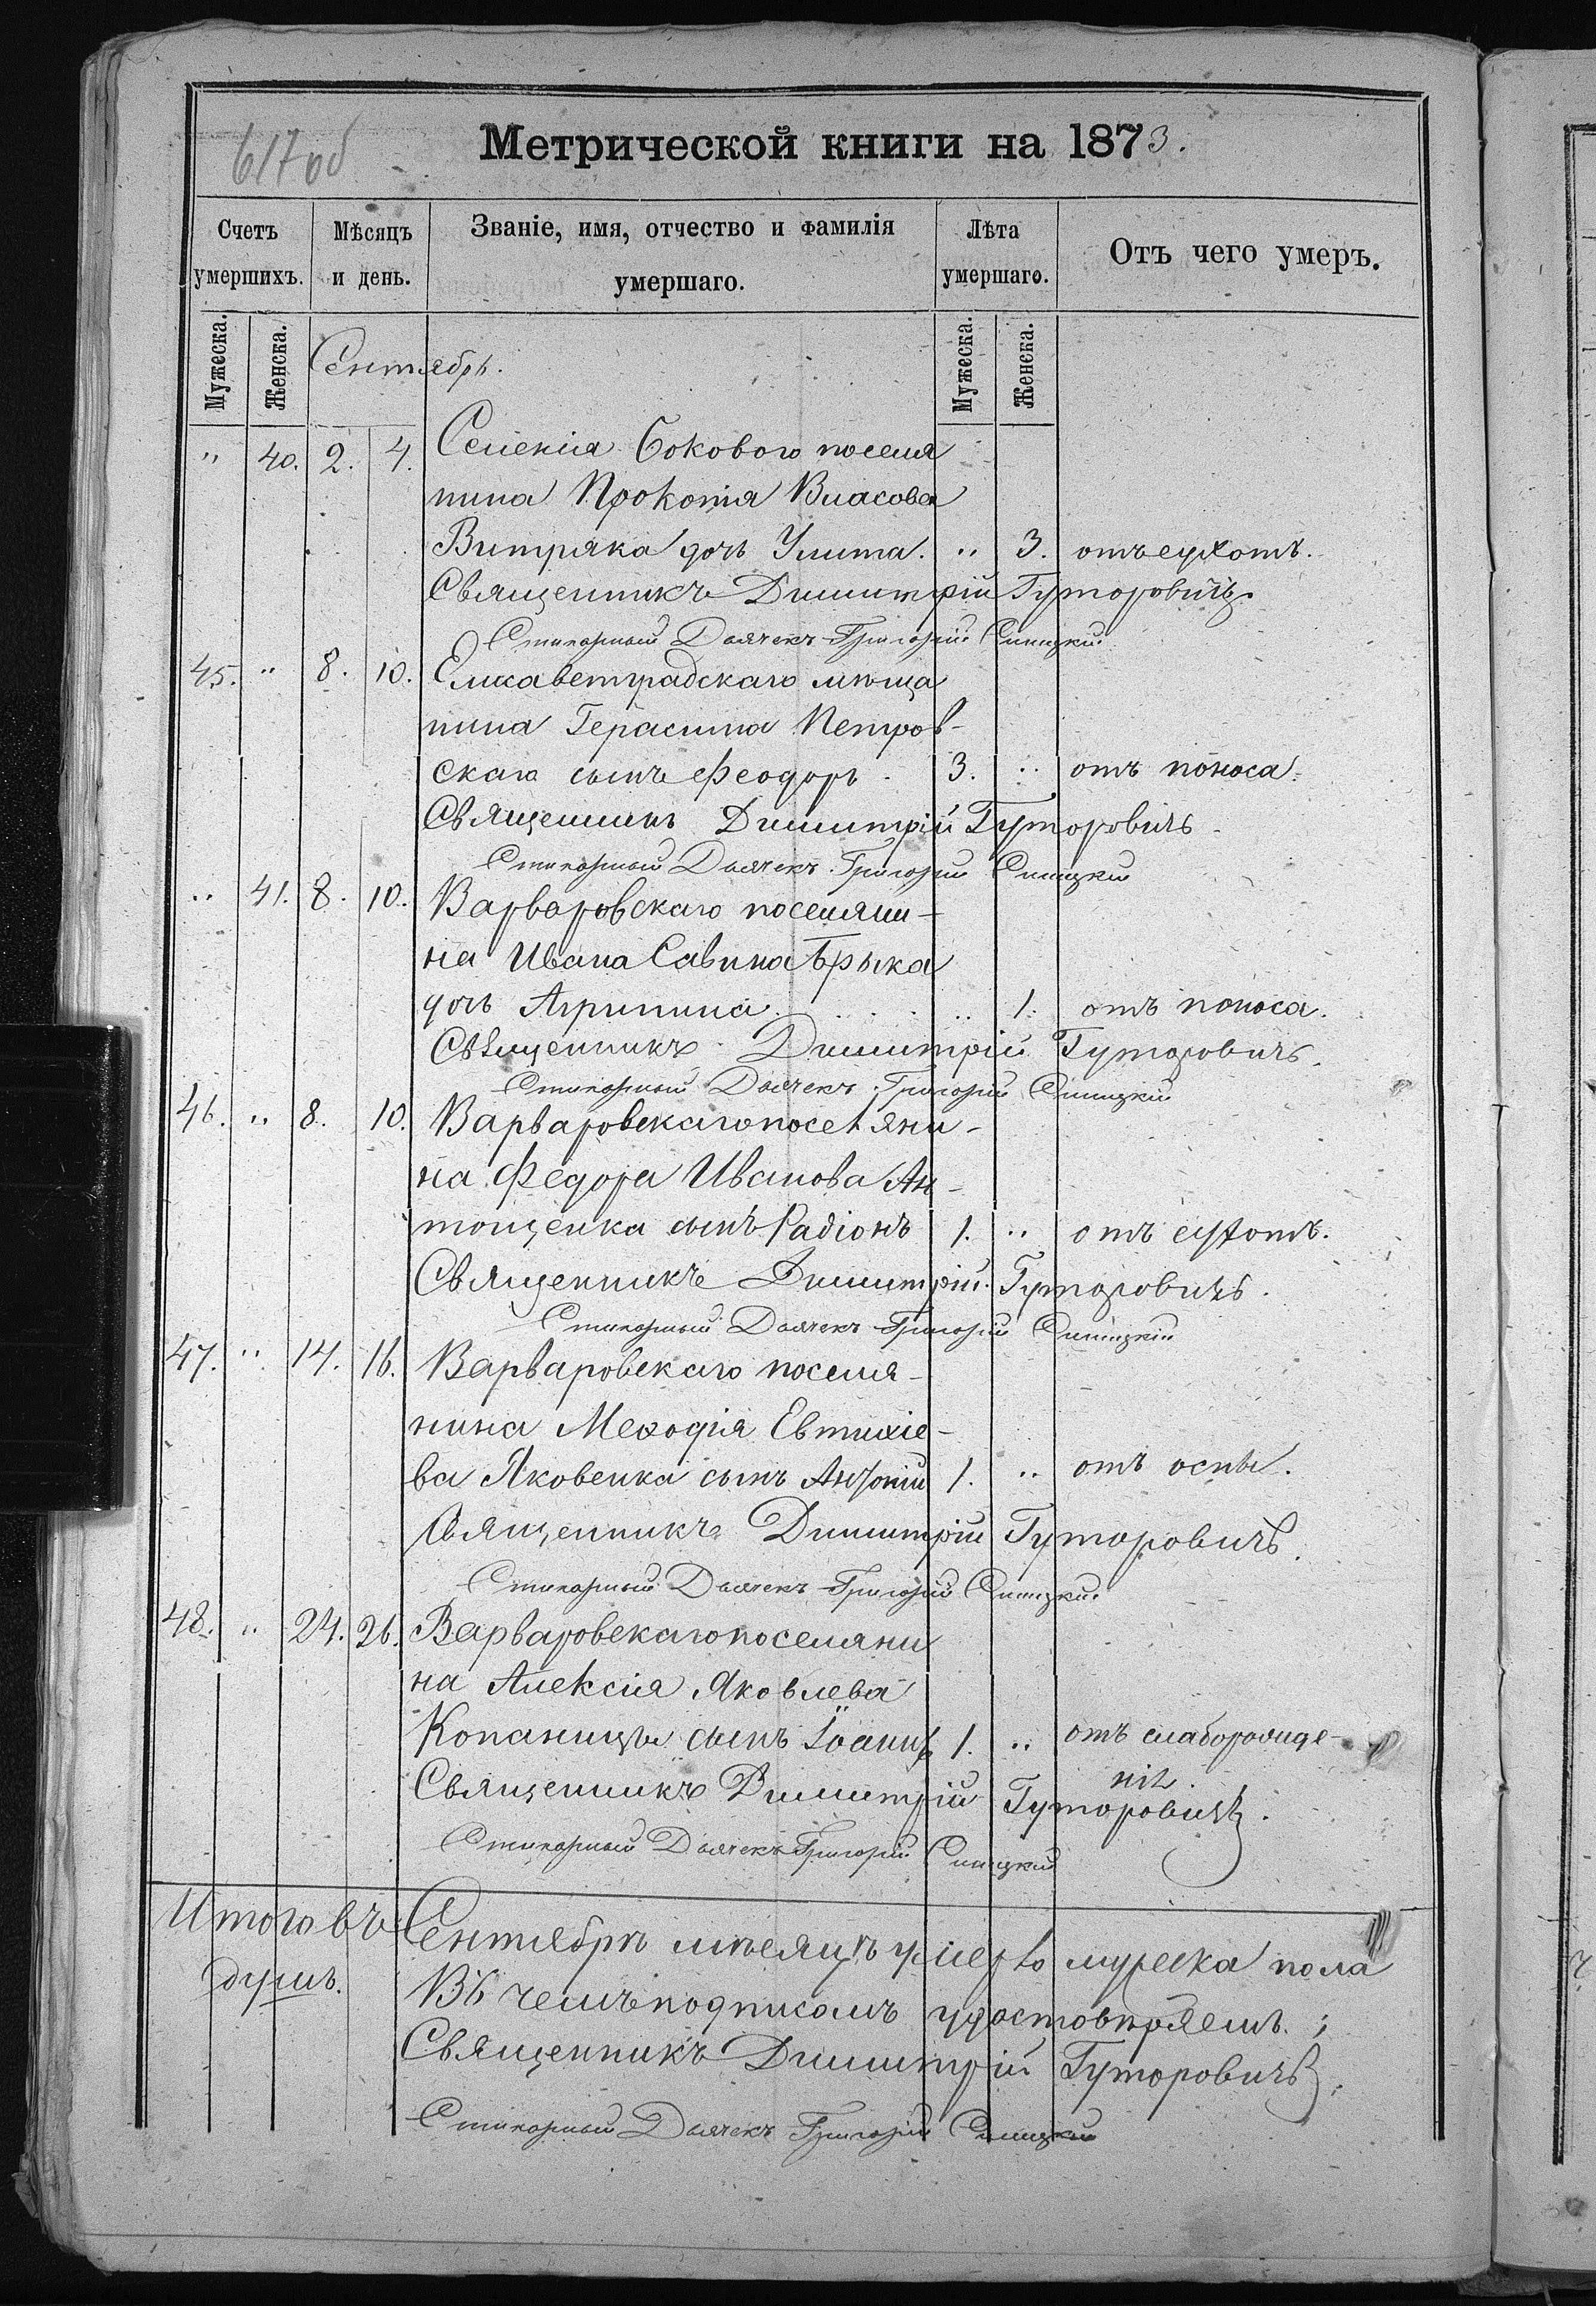 617 об
Метрической книги на 1873.
Счетъ умершихъ.
Мѣсяцъ и день.
Званіе, имя, отчество и фамилія умершаго.
Лѣта умершаго.
Отъ чего умеръ.
Мужеска. Женска. Мужеска. Женска.
Сентябрь.
" 40. 2. 4. Селенія Бокового поселя
нина Прокопія Власова
Витряка дочь Улита. " 3. отъ сухотъ.
Священникъ Димитрій Гуторовичъ.
Стихарный Дьячекъ Григорій
45. " 8. 10. Елисаветградскаго мѣща
нина Герасима Петров-
скаго сынъ Феодоръ. 3. " отъ поноса.
Священникъ Димитрій Гуторовичъ.
Стихарный Дьячекъ Григорій
" 41. 8. 10. Варваровскаго поселяни-
на Ивана Савина Брыка
дочь Агрипина. " 1. отъ поноса.
Священникъ Димитрій Гуторовичъ.
Стихарный Дьячекъ Григорій
46. " 8. 10. Варваровскаго поселяни-
на Федора Иванова Ан-
тощенка сынъ Радіонъ 1. " отъ сухотъ.
Священникъ Димитрій Гуторовичъ.
Стихарный Дьячекъ Григорій
47. " 14. 16. Варваровскаго поселя-
нина Мефодія Евтихіе-
ва Яковенка сынъ Антоній 1. " отъ оспы.
Священникъ Димитрій Гуторовичъ.
Стихарный Дьячекъ Григорій
48. " 24. 26. Варваровскаго поселяни
на Алексія Яковлева
Копаницы сынъ Іоаннъ 1. " отъ слаборожде-
нія.
Священникъ Димитрій Гуторовичъ.
Стихарный Дьячекъ Григорій
Итого въ Сентябрѣ мѣсяцѣ умерло мужеска пола
душъ.
Въ чемъ подписомъ удостовѣряемъ:
Священникъ Димитрій Гуторовичъ.
Стихарный Дьячекъ Григорій